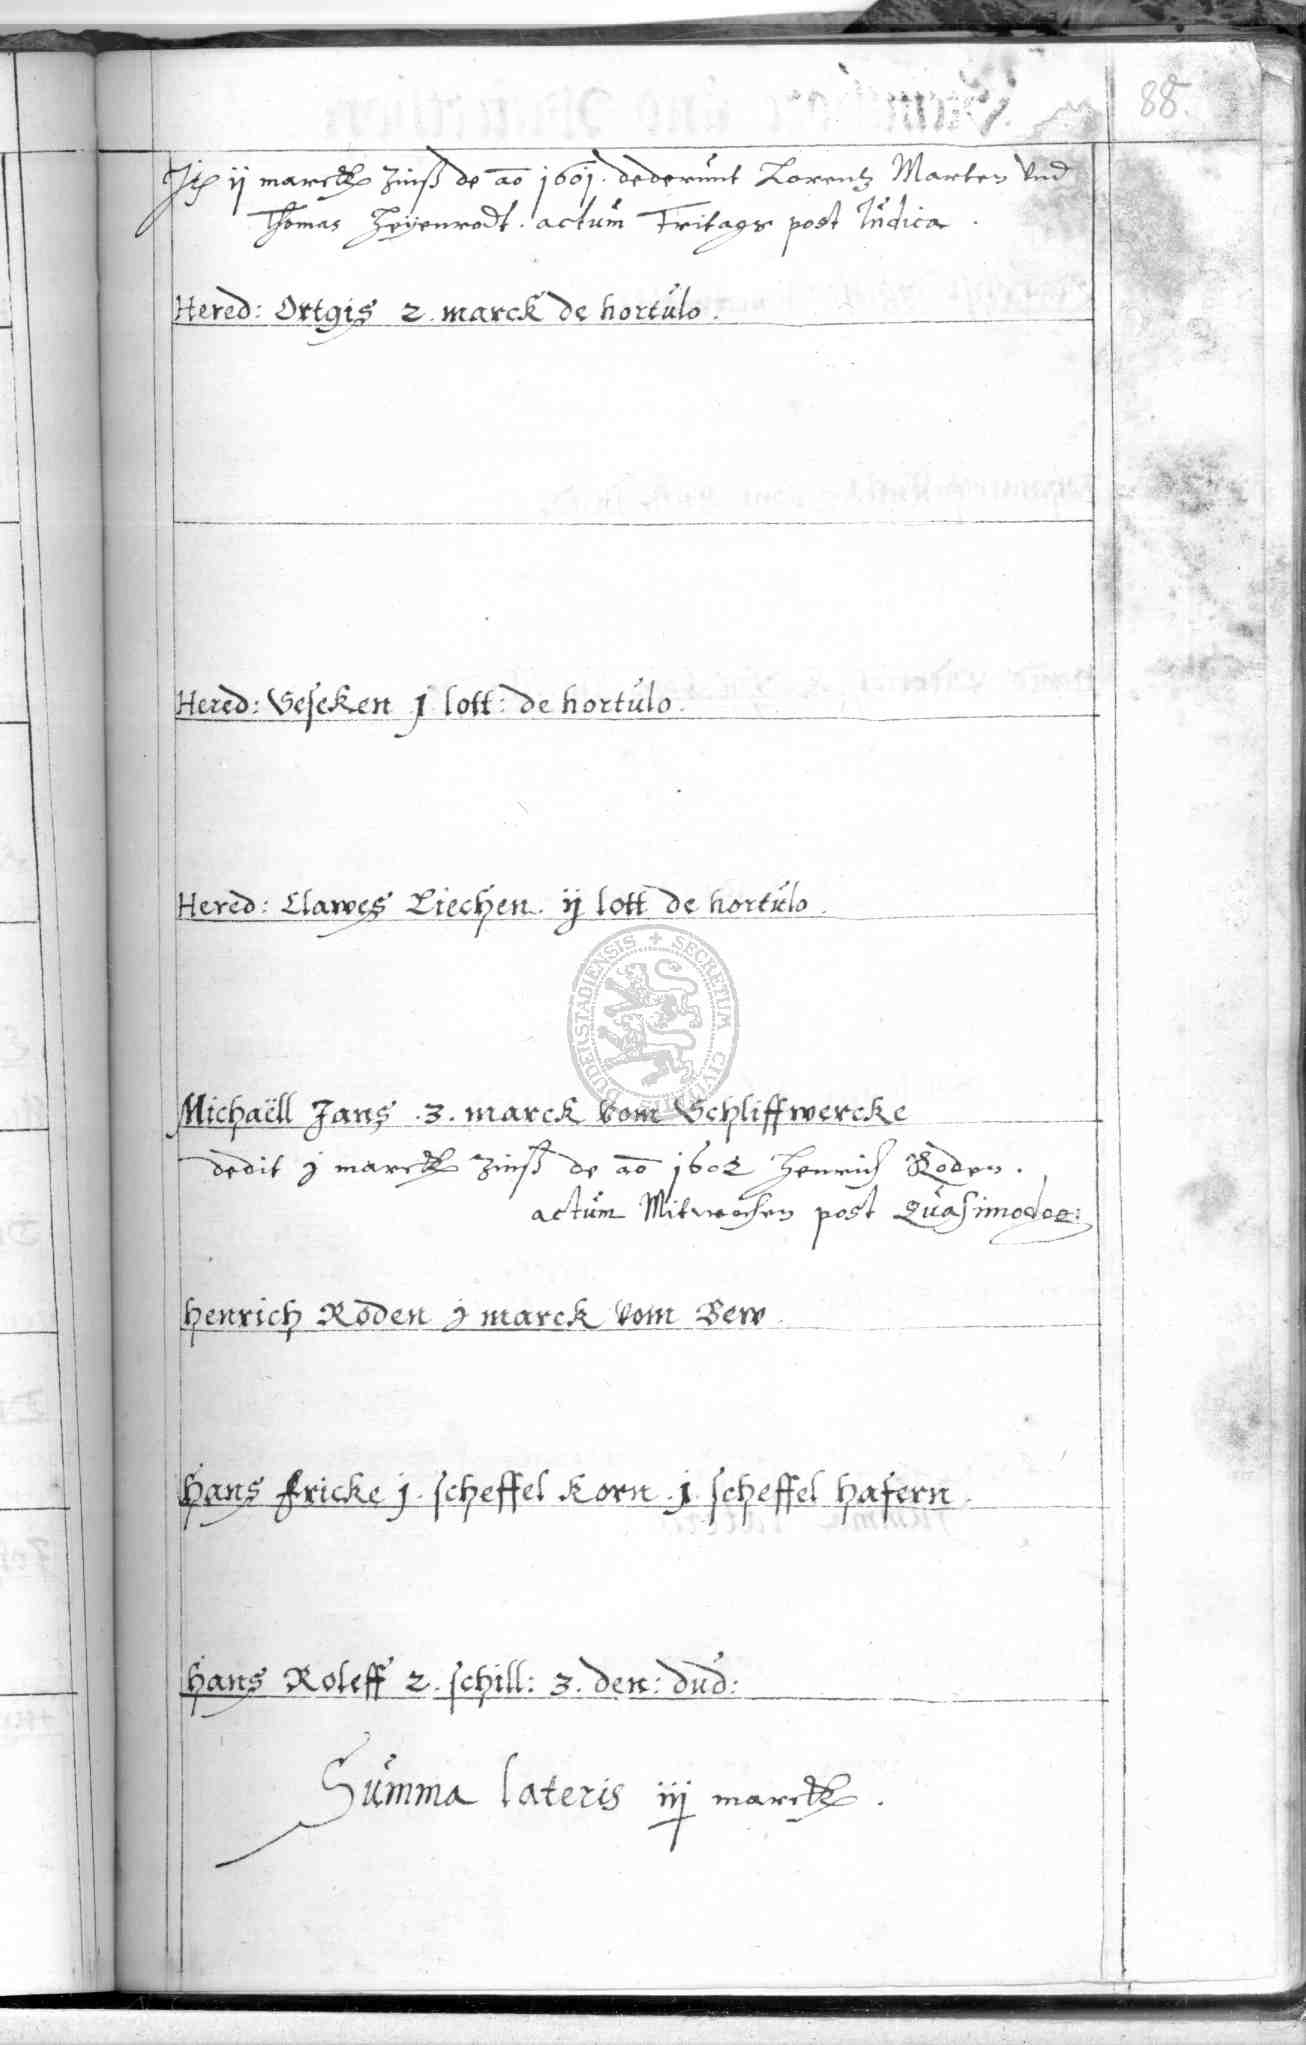 88.
It ij marck Zinß de ao 1601. dederunt Lorentz Marten vnd
Thomas Heyenrodt. actum Fritags post Judica.
Hered: Ortgis 2. marck de hortulo.
Hered: Geseken j lott: de hortulo.
Hered: Clawes Liechen. ij lott de hortulo.
DUDERSTADIENSIS + SECRETUM CIVITATIS
Michaëll Jans .3. marck vom Schliffwercke
dedit j marck Zinß de ao 1602 Henrich Roden.
actum Mitwochen post Quasimodog:
Henrich Roden j marck vom Bew
Hans Fricke j. scheffel Korn .j. scheffel hafern.
Hans Roleff 2. schill: 3. den: dud:
Summa lateris iij marck.